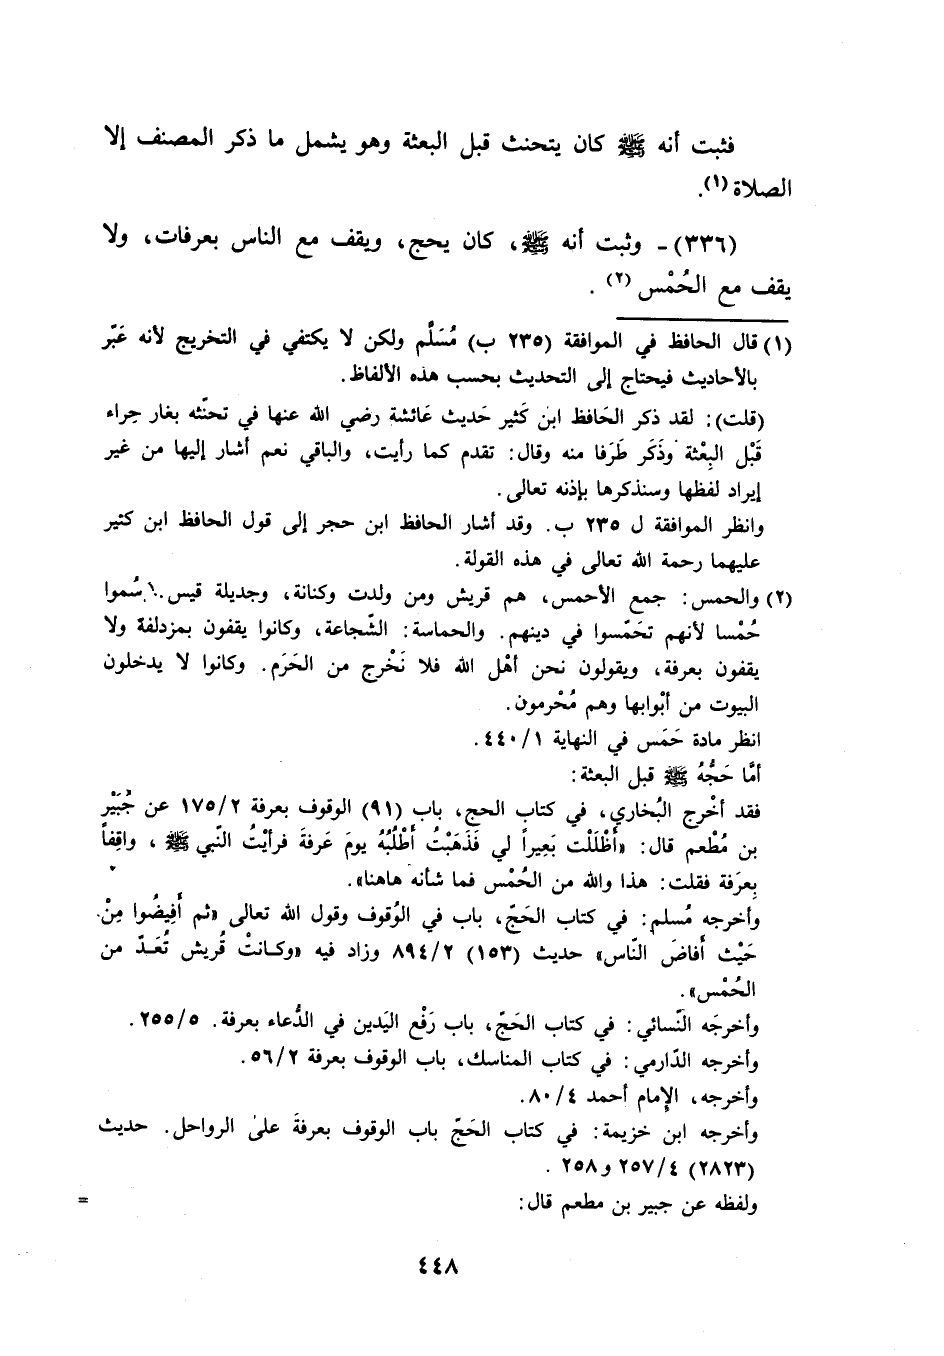 فثبت أنه ﷺ كان يتحنث قبل البعثة وهو يشمل ما ذكر المصنف إلا
الصلاة (١).
(٣٣٦) - وثبت أنه ﷺ، كان يحج، ويقف مع الناس بعرفات، ولا
يقف مع الحُمْس (٢) .
(١) قال الحافظ في الموافقة (٢٣٥ ب) مُسَلَّم ولكن لا يكتفي في التخريج لأنه عَبّر
بالأحاديث فيحتاج إلى التحديث بحسب هذه الألفاظ.
(قلت): لقد ذكر الحَافظ ابن كَثير حَديث عَائشة رضي الله عنها في تحنّثه بغار حِراء
قَبْل البِعْثة وَذَكَر طَرَفا منه وقال: تقدم كما رأيت، والباقي نعم أشار إليها من غير
إيراد لفظها وسنذكرها بإذنه تعالى.
وانظر الموافقة ل ٢٣٥ ب. وقد أشار الحافظ ابن حجر إلى قول الحافظ ابن كثير
عليهما رحمة الله تعالى في هذه القولة.
(٢) والحمس: جمع الأحمس، هم قريش ومن ولدت وكنانة، وجديلة قيس. سُموا
حُمْسا لأنهم تحَمّسوا في دينهم. والحماسة: الشّجاعة، وكانوا يقفون بمزدلفة ولا
يقفون بعرفة، ويقولون نحن أهْل الله فلا نَخْرج من الحَرَم. وكانوا لا يدخلون
البيوت من أبْوابها وهم مُحْرمون.
انظر مادة حَمَس في النهاية ٤٤٠/١.
أمَّا حَجُّهُ ﷺ قبل البعثة:
فقد أخْرج البُخاري، في كتاب الحج، باب (٩١) الوقوف بعرفة ١٧٥/٢ عن جُبَيْر
بن مُطْعم قال: «أَظْلَلْت بَعِيراً لي فَذَهَبْتُ أطْلُبُهُ يومَ عَرفةَ فرأيْتُ النّبي ﷺ ، واقِفاً
بِعرَفة فقلت: هذا والله من الحُمْس فما شأنه هاهنا».
وأخرجه مُسلم: في كتاب الحَجّ، باب في الوُقوف وقول الله تعالى «ثم أَفِيضُوا مِنْ
حَيْث أَفاضَ النّاس» حديث (١٥٣) ٨٩٤/٢ وزاد فيه «وكـانتْ قُريش تُعَـدّ من
الحُمْس».
وأخرجَه النّسائي: في كتاب الحَجّ، باب رَفْع اليَدين في الدُّعاء بعرفة. ٢٥٥/٥.
وأخرجه الدّارمي: في كتاب المناسك، باب الوقوف بعرفة ٥٦/٢.
وأخرجه، الإمام أحمد ٨٠/٤.
وأخرجه ابن خزيمة: في كتاب الحَجّ باب الوقوف بعرفةَ علىٰ الرواحل. حديث
(٢٨٢٣) ٢٥٧/٤ و٢٥٨ .
ولفظه عن جبير بن مطعم قال: =
٤٤٨